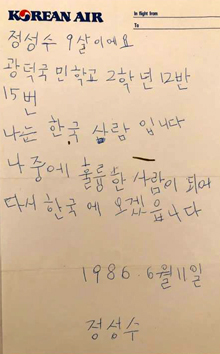 KOREAN AIR
In flight from
To
정성수 9살이에요
광덕국민학교 2학년 12반
15번
나는 한국 사람 입니다
나중에 훌륭한 사람이 되어
다시 한국에 오겠읍니다
1986. 6월 11일
정성수